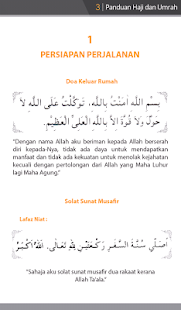 3 | Panduan Haji dan Umrah
1
PERSIAPAN PERJALANAN
Doa Keluar Rumah
بِسْمِ اللَّهِ اٰمَنْتُ بِاللَّهِ، تَوَكَّلْتُ عَلَى اللَّهِ لَا
حَوْلَ وَلَا قُوَّةَ إِلَّا بِاللَّهِ الْعَلِيِّ الْعَظِيْمِ.
"Dengan nama Allah aku beriman kepada Allah berserah
diri kepada-Nya, tidak ada daya untuk mendapatkan
manfaat dan tidak ada kekuatan untuk menolak kejahatan
kecuali dengan pertolongan dari Allah yang Maha Luhur
lagi Maha Agung."
Solat Sunat Musafir
Lafaz Niat :
أُصَلِّيْ سُنَّةَ السَّفَرِ رَكْعَتَيْنِ لِلَّهِ تَعَالَى. اللهُ أَكْبَرُ
"Sahaja aku solat sunat musafir dua rakaat kerana
Allah Ta'ala."